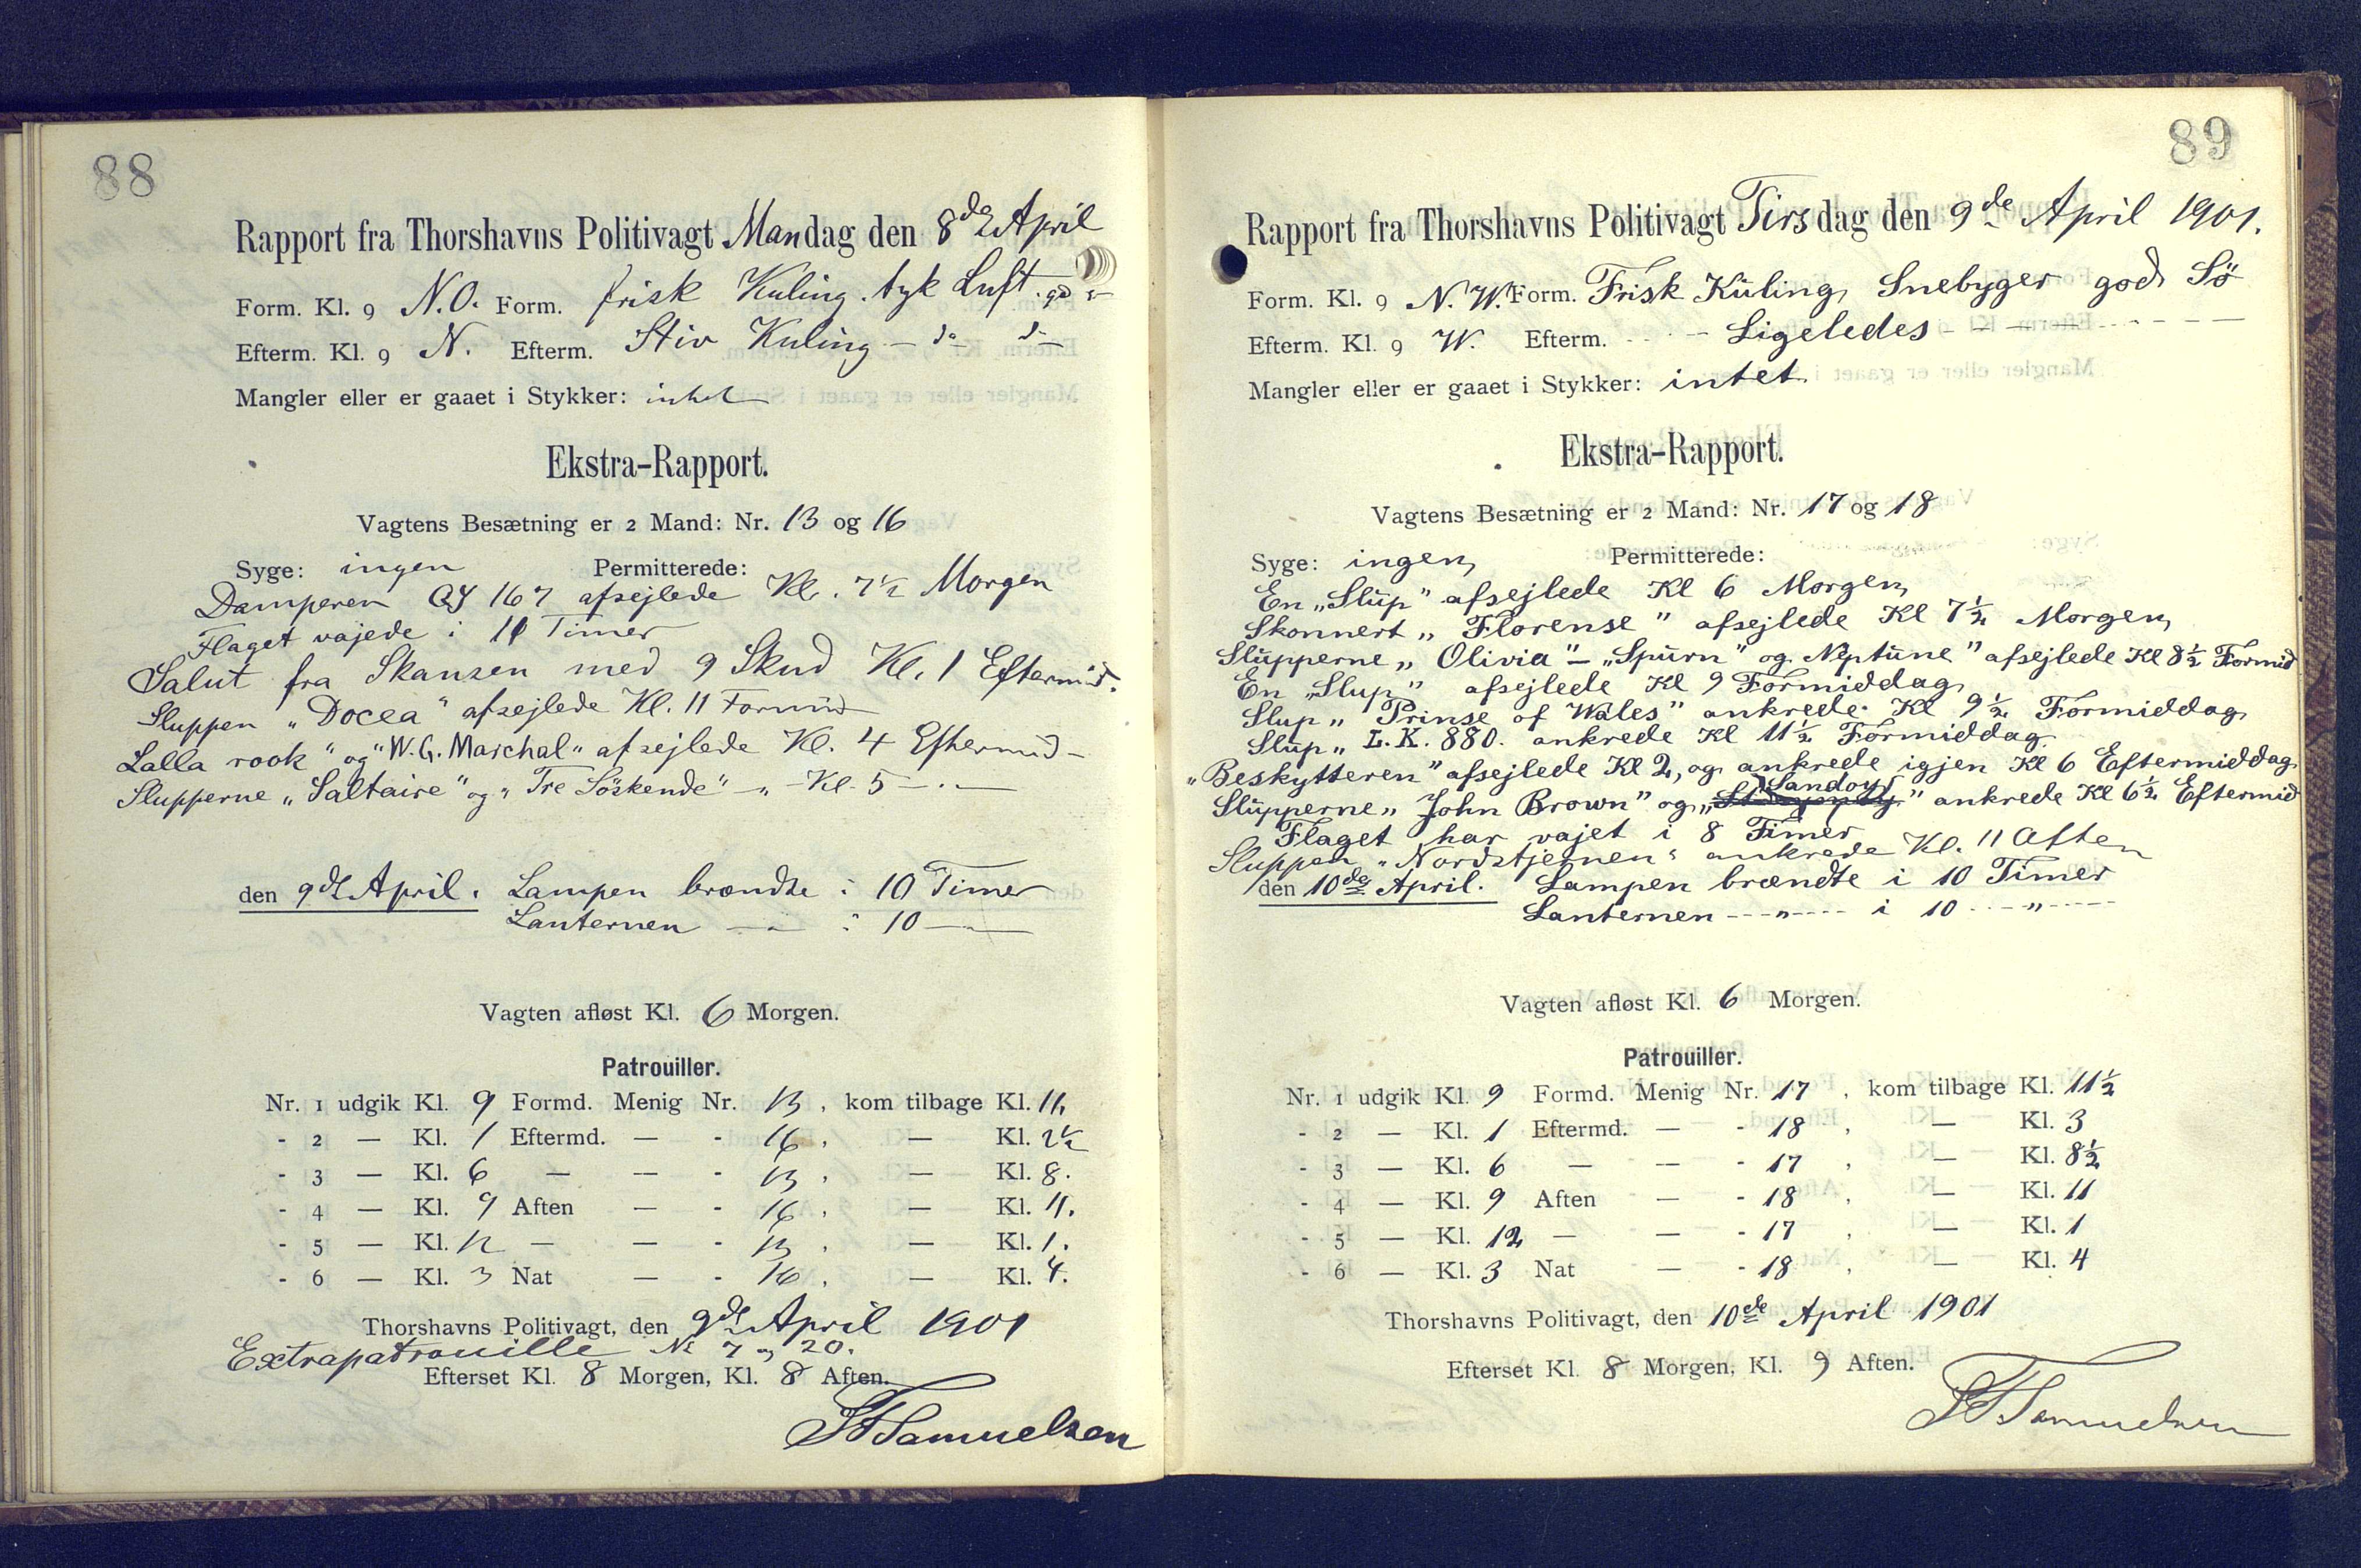 88
Rapport fra Thorshavns Politivagt Mandag den 8de April
Form. Kl. 9 N.O. Form. frisk Kuling. tyk Luft. gd
Efterm. Kl. 9 N. Efterm. Stiv Kuling — do do
Mangler eller er gaaet i Stykker: intet
Ekstra-Rapport.
Vagtens Besætning er 2 Mand: Nr. 13 og 16
Syge: ingen Permitterede:
Damperen QY 167 afsejlede Kl. 7½ Morgen
Flaget vajede i 11 Timer
Salut fra Skansen med 9 Skud Kl. 1 Eftermid.
Sluppen "Docea" afsejlede Kl. 11 Formid
Lalla rook" og "W.G. Marchal" afsejlede Kl. 4 Eftermid-
Slupperne "Saltaire" og "Tre Söskende" — " — Kl. 5 — . —
den 9de April. Lampen brændte i 10 Timer
Lanternen — " — i 10 — " —
Vagten afløst Kl. 6 Morgen.
Patrouiller.
Nr. 1 udgik Kl. 9 Formd. Menig Nr. 13, kom tilbage Kl. 11,
- 2 — Kl. 1 Eftermd. — - 16, — Kl. 2½
- 3 — Kl. 6 — — - 13, — Kl. 8.
- 4 — Kl. 9 Aften — - 16, — Kl. 11.
- 5 — Kl. 12 — — - 13, — Kl. 1.
- 6 — Kl. 3 Nat — - 16, — Kl. 4.
Thorshavns Politivagt, den 9de April 1901
Extrapatrouille No 7 og 20.
Efterset Kl. 8 Morgen, Kl. 8 Aften.
Samuelsen
89
Rapport fra Thorshavns Politivagt Tirsdag den 9de April 1901.
Form. Kl. 9 N.W. Form. Frisk Kuling, Snebyger god Sö
Efterm. Kl. 9 W. Efterm. - - - Ligeledes - - - - -
Mangler eller er gaaet i Stykker: intet
Ekstra-Rapport.
Vagtens Besætning er 2 Mand: Nr. 17 og 18
Syge: ingen Permitterede:
En "Slup" afsejlede Kl 6 Morgen
Skonnert "Florense" afsejlede Kl 7½ Morgen
Slupperne "Olivia" — "Spurn" og Neptune" afsejlede Kl 8½ Formid
En "Slup" afsejlede Kl 9 Formiddag
Slup "Prinse of Wales" ankrede Kl 9½ Formiddag
Slup "L.K. 880. ankrede Kl 11½ Formiddag.
"Beskytteren" afsejlede Kl 2, og ankrede igjen Kl 6 Eftermiddag
Slupperne "John Brown" og "Sandoy" ankrede Kl 6½ Eftermid
Flaget har vajet i 8 Timer
Sluppen "Nordstjernen" ankrede Kl. 11 Aften
den 10de April. Lampen brændte i 10 Timer
Lanternen - - - " - - - i 10 - - - " - - -
Vagten afløst Kl. 6 Morgen.
Patrouiller.
Nr. 1 udgik Kl. 9 Formd. Menig Nr. 17, kom tilbage Kl. 11½
- 2 — Kl. 1 Eftermd. — - 18, — Kl. 3
- 3 — Kl. 6 — — - 17, — Kl. 8½
- 4 — Kl. 9 Aften — - 18, — Kl. 11
- 5 — Kl. 12 — — - 17, — Kl. 1
- 6 — Kl. 3 Nat — - 18, — Kl. 4
Thorshavns Politivagt, den 10de April 1901
Efterset Kl. 8 Morgen, Kl. 9 Aften.
Samuelsen